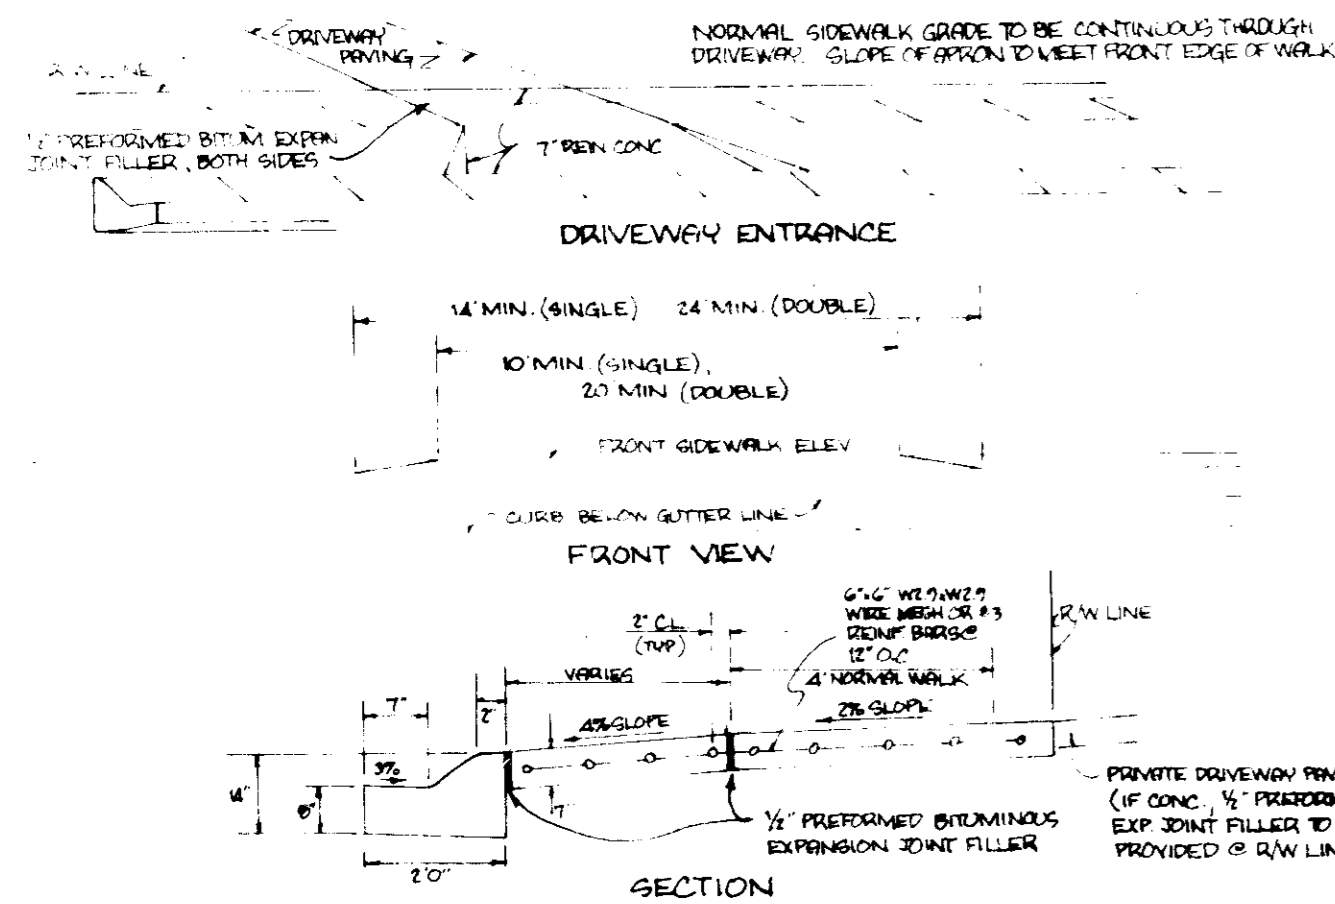 DRIVEWAY
PAVING
NORMAL SIDEWALK GRADE TO BE CONTINUOUS THROUGH
DRIVEWAY. SLOPE OF APRON TO MEET FRONT EDGE OF WALK
LINE
1/2" PREFORMED BITUM EXPAN
JOINT FILLER, BOTH SIDES
7" REIN CONC
DRIVEWAY ENTRANCE
14' MIN. (SINGLE) 24' MIN. (DOUBLE)
10' MIN. (SINGLE),
20' MIN (DOUBLE)
FRONT SIDEWALK ELEV
CURB BELOW GUTTER LINE
FRONT VIEW
6"x6" W2.9xW2.9
WIRE MESH OR #3
REINF BARS @
12" O.C
2" CL.
(TYP)
R/W LINE
VARIES
4' NORMAL WALK
7"
2"
4% SLOPE
2% SLOPE
3%
14"
8"
7"
2'0"
1/2" PREFORMED BITUMINOUS
EXPANSION JOINT FILLER
PRIVATE DRIVEWAY
(IF CONC., 1/2" PREFOR
EXP. JOINT FILLER TO
PROVIDED @ R/W LIN
SECTION